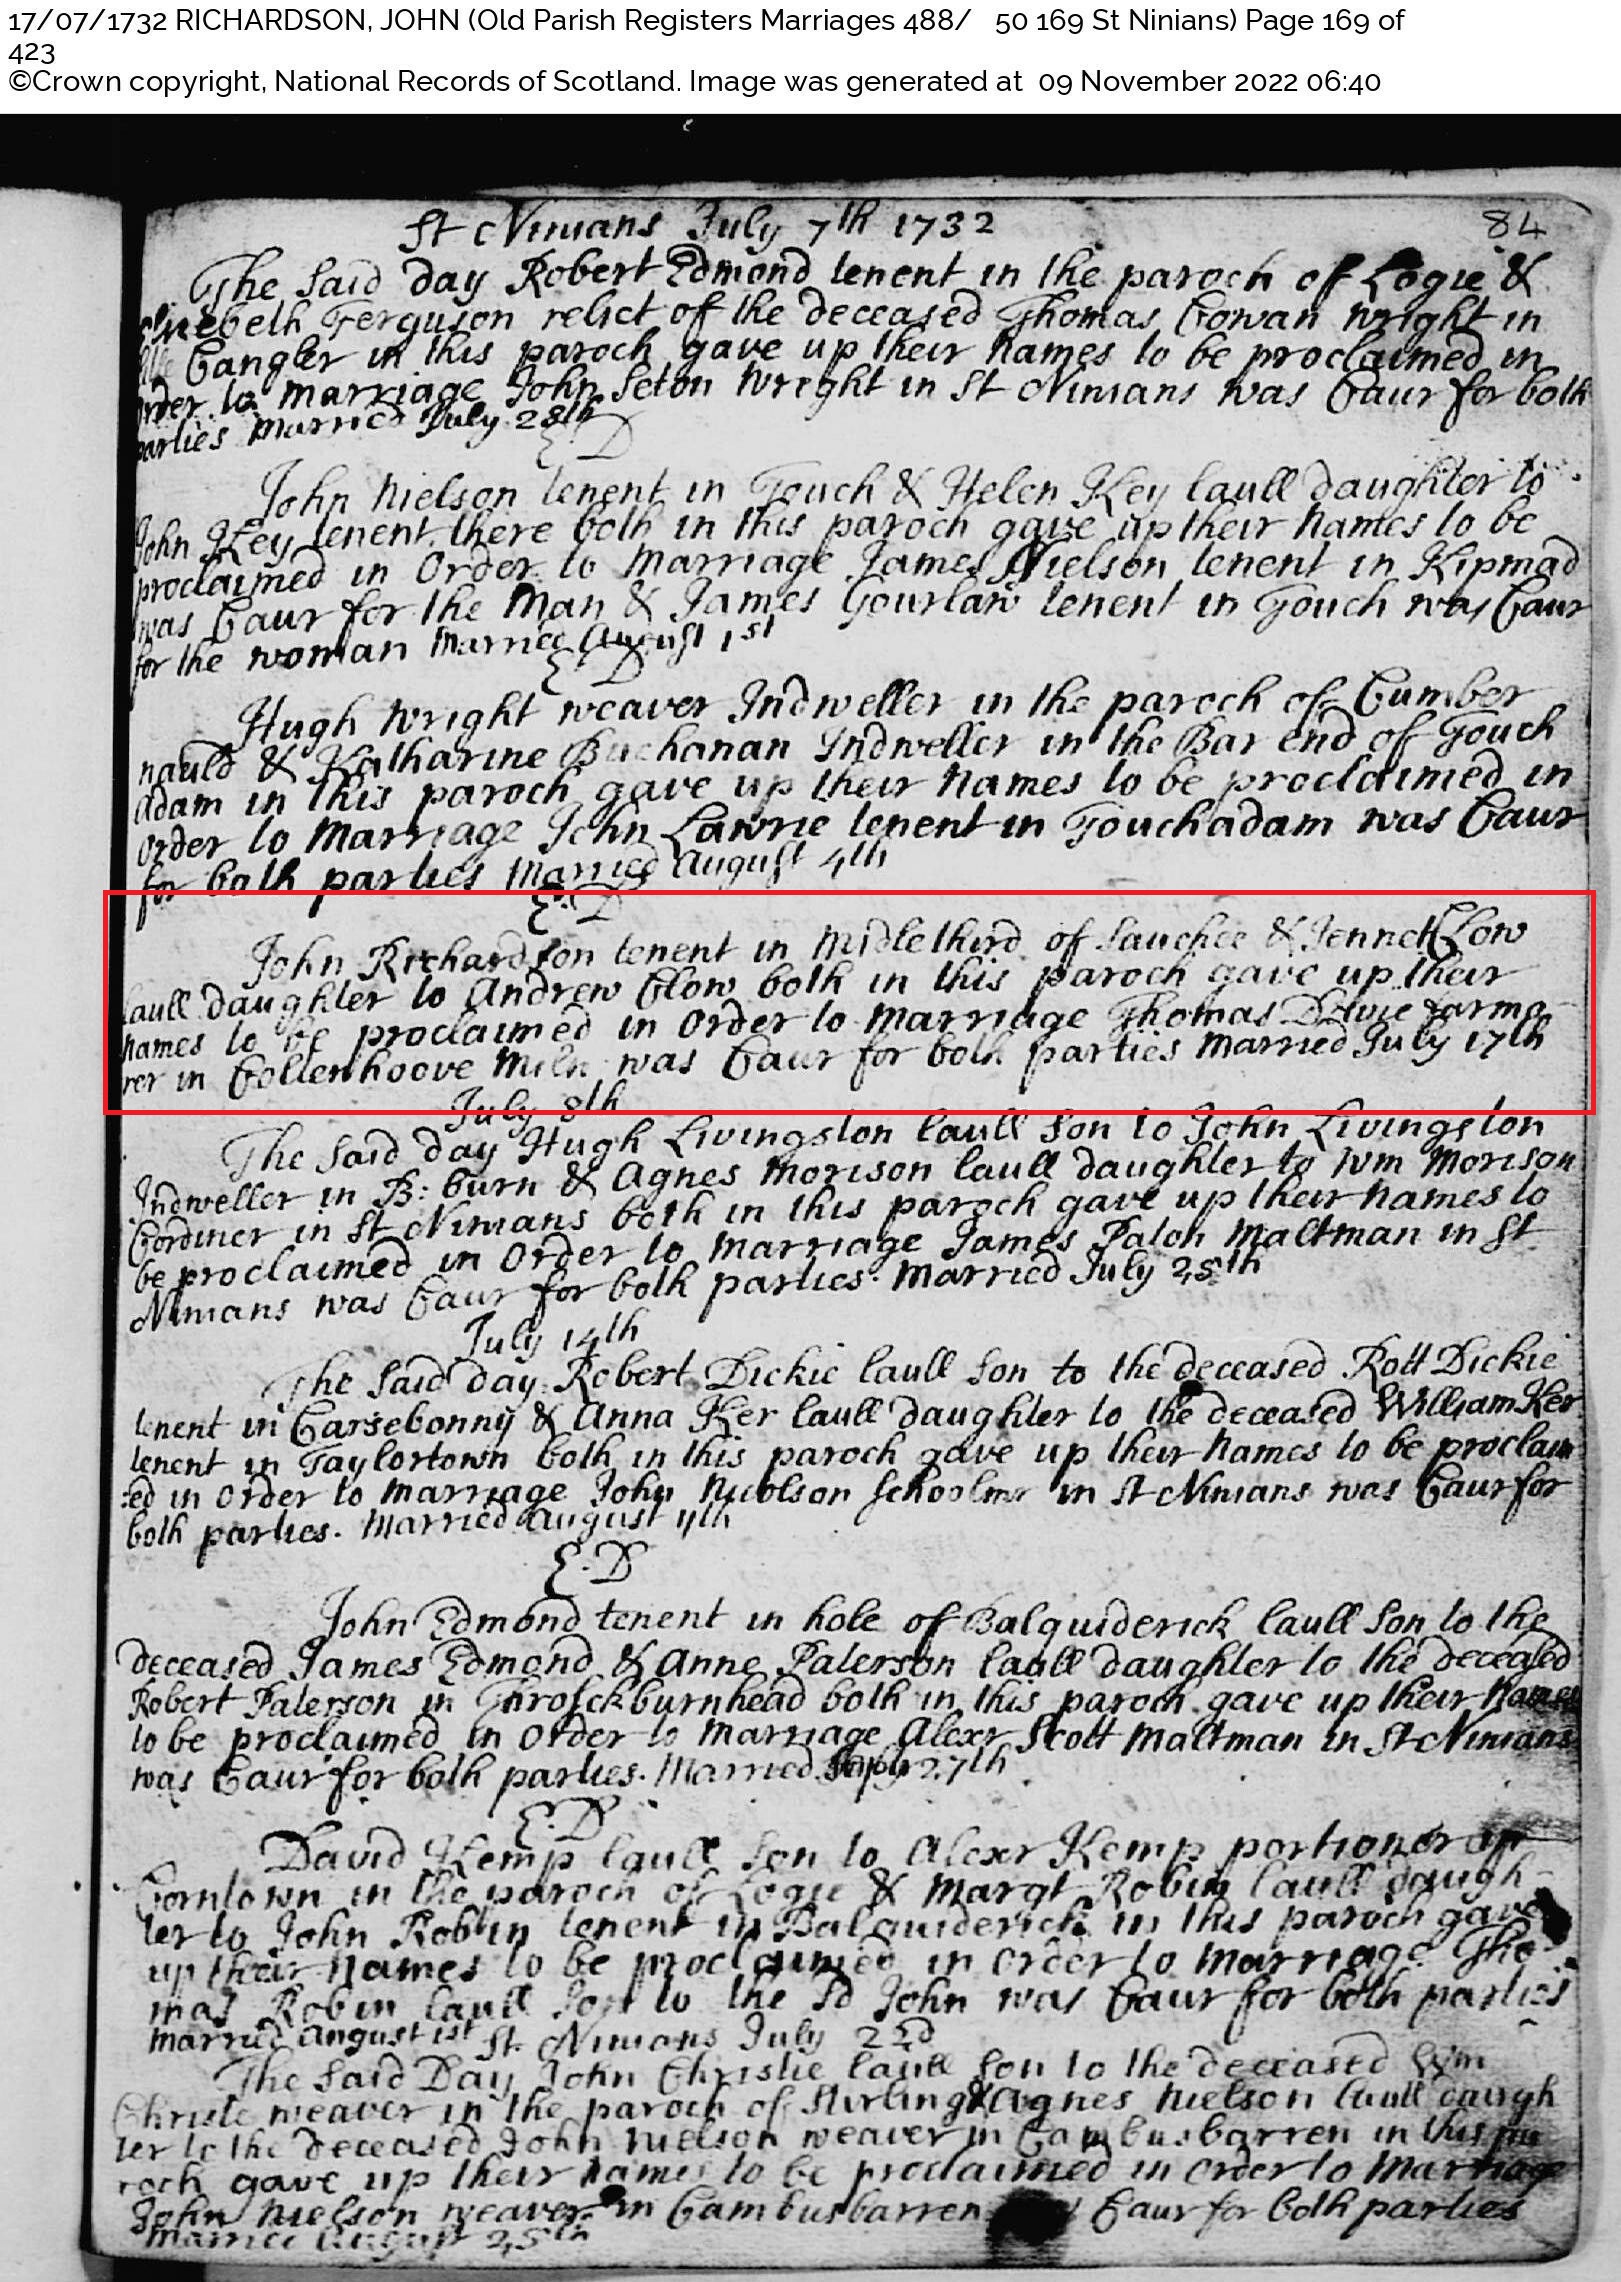 17/07/1732 RICHARDSON, JOHN (Old Parish Registers Marriages 488/ 50 169 St Ninians) Page 169 of
423
©Crown copyright, National Records of Scotland. Image was generated at 09 November 2022 06:40
St Ninians July 7th 1732 84
The Said day Robert Edmond tenent in the paroch of Logie &
Ferguson relict of the deceased Thomas Cowan wright in
Cangler in this paroch gave up their names to be proclaimed in
order to marriage John Seton wright in St Ninians was Caur for both
parties married July 28th
E D
John Nielson tenent in Touch & Helen Key laull daughter to
John Key tenent there both in this paroch gave up their names to be
proclaimed in Order to Marriage James Nielson tenent in Kipmad
was Caur for the Man & James Gourlaw tenent in Touch was Caur
for the woman Married August 1st
E D
Hugh wright weaver Indweller in the paroch of Cumber
nauld & Katharine Buchanan Indweller in the Bar end of Touch
adam in this paroch gave up their names to be proclaimed in
order to Marriage John Lawrie tenent in Touchadam was Caur
for both parties Married August 4th
E. D
John Richardson tenent in Midlethird of Sauchee & Jennet Clow
laull daughter to Andrew Clow both in this paroch gave up their
names to be proclaimed in Order to Marriage Thomas farme
rer in Coltenhoove Miln was Caur for both parties Married July 17th
July 8th
The Said day Hugh Livingston laull Son to John Livingston
Indweller in B: burn & Agnes Morison laull daughter to Wm Morison
Cordiner in St Ninians both in this paroch gave up their names to
be proclaimed in Order to Marriage James Paton Maltman in St
Ninians was Caur for both parties. Married July 25th
July 14th
The Said day Robert Dickie laull Son to the deceased Rott Dickie
tenent in Carsebonny & Anna Ker laull daughter to the deceased William Ker
tenent in Taylortown both in this paroch gave up their names to be proclaim
:ed in Order to Marriage John Nicolson Schoolmr in St Ninians was Caur for
both parties. Married August 11th
E. D
John Edmond tenent in hole of Balquiderick laull Son to the
deceased James Edmond & Anne Paterson laull daughter to the deceased
Robert Paterson in Throsckburnhead both in this paroch gave up their names
to be proclaimed in Order to Marriage Alexr Scott Maltman in St Ninians
was Caur for both parties. Married 27th
E. D
David Kemp laull Son to Alexr Kemp portioner in
Corntown in the paroch of Logie & Margt Robin laull daugh
ter to John Robin tenent in Balquiderick in this paroch gave
up their names to be proclaimed in Order to Marriage Tho
mas Robin laull Son to the sd John was Caur for both parties
Married August 1st St. Ninians July 22d
The Said Day John Christie laull Son to the deceased Wm
Christe weaver in the paroch of Stirling & Agnes Nielson laull daugh
ter to the deceased John Nielson weaver in Cambusbarren in this pa
roch gave up their names to be proclaimed in Order to Marriage
John Nielson weaver in Cambusbarren Caur for both parties
Married August 25th